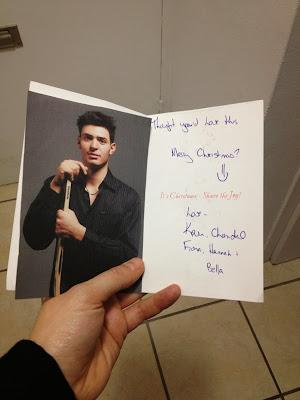 Thought you'd love this
Merry Christmas?
It's Christmas - Share the Joy!
Love -
Chandal
Fiona, Hannah &
Bella